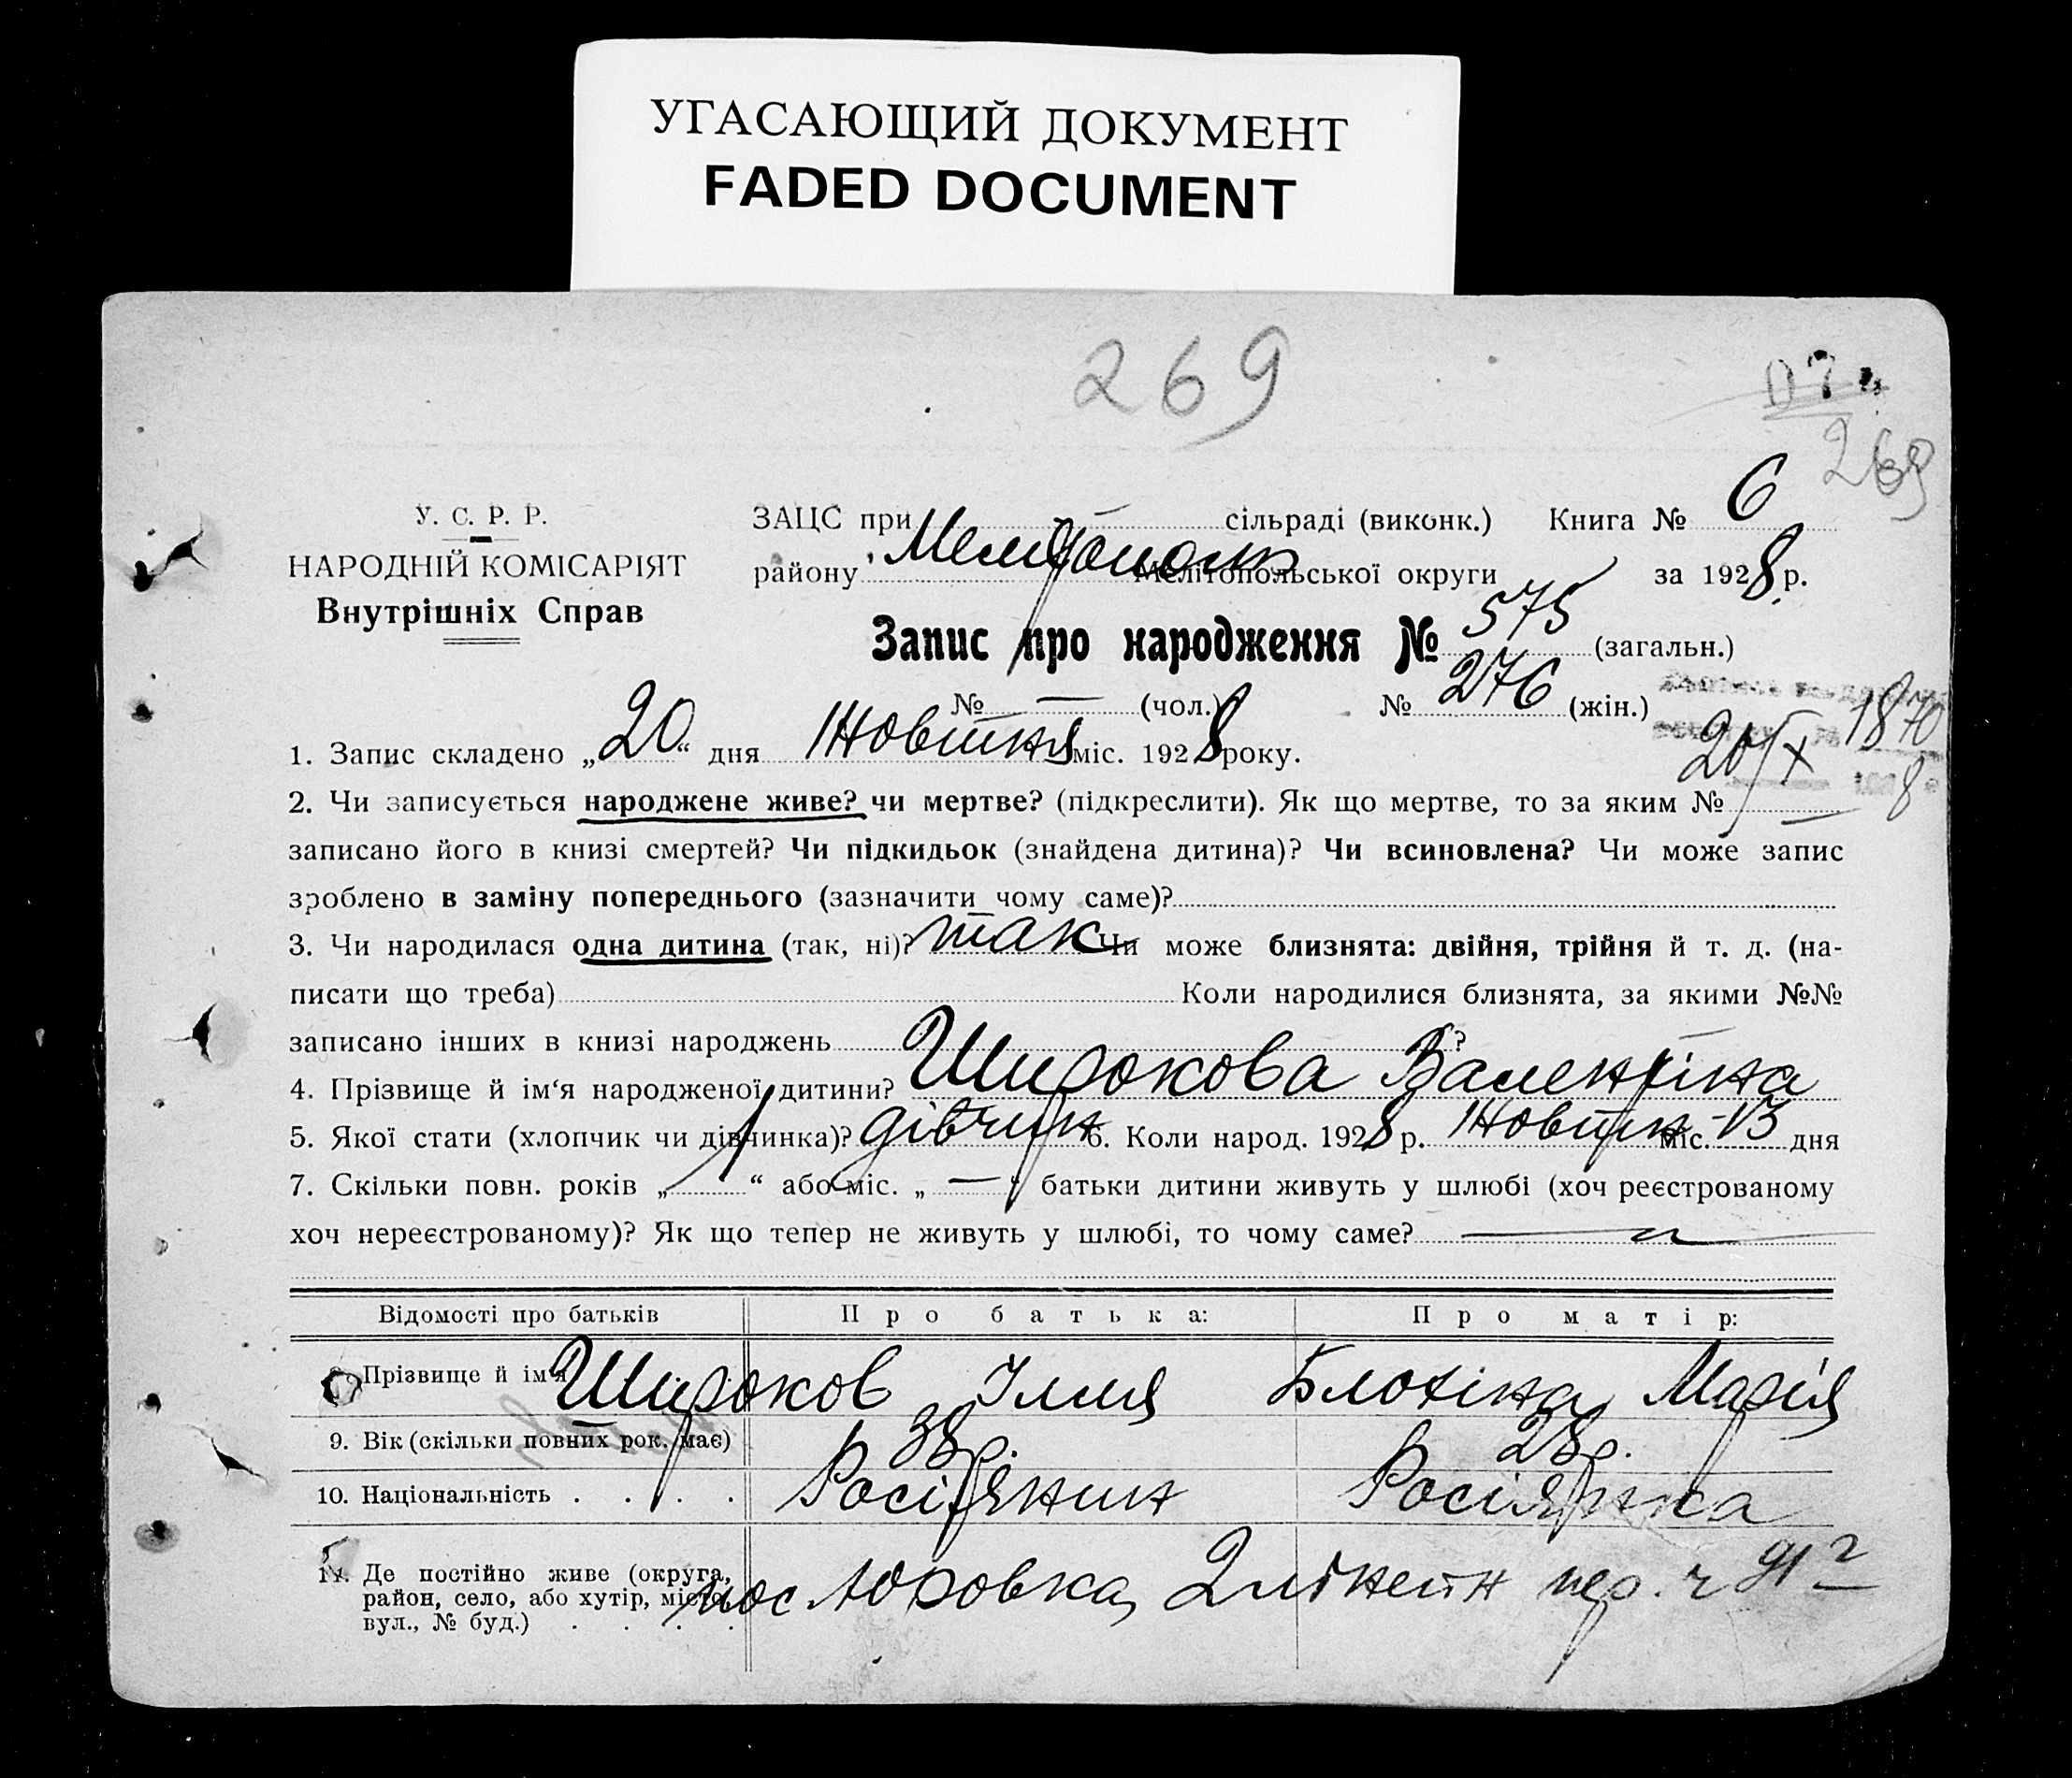 УГАСАЮЩИЙ ДОКУМЕНТ
FADED DOCUMENT
269
269
У. С. Р. Р.
НАРОДНІЙ КОМІСАРІЯТ
Внутрішніх Справ
ЗАЦС при — сільраді (виконк.) Книга № 6
району Мелітополь Мелітопольської округи за 1928 р.
Запис про народження № 575 (загальн.)
№ — (чол.) № 276 (жін.)
1870
20/X 8
1. Запис складено „20“ дня Жовтня міс. 1928 року.
2. Чи записується народжене живе? чи мертве? (підкреслити). Як що мертве, то за яким № —
записано його в книзі смертей? Чи підкидьок (знайдена дитина)? Чи всиновлена? Чи може запис
зроблено в заміну попереднього (зазначити чому саме)?
3. Чи народилася одна дитина (так, ні)? так Чи може близнята: двійня, трійня й т. д. (на-
писати що треба) Коли народилися близнята, за якими №№
записано інших в книзі народжень ?
4. Прізвище й ім‘я народженої дитини? Широкова Валентіна
5. Якої стати (хлопчик чи дівчинка)? дівчин 6. Коли народ. 1928 р. Жовтн міс. 13 дня
7. Скільки повн. років „1“ або міс. „—“ батьки дитини живуть у шлюбі (хоч реєстрованому
хоч нереєстрованому)? Як що тепер не живуть у шлюбі, то чому саме? —
Відомості про батьків Про батька: Про матір:
8. Прізвище й ім‘я Широков Ілля Блохіна Марія
9. Вік (скільки повних рок. має) 38 р. 28 р.
10. Національність . . . . Росіянин Росіянка
11. Де постійно живе (округа,
район, село, або хутір, місто,
вул., № буд.) . . . .
пос Юровка, 2 лінейн пер. ч 91